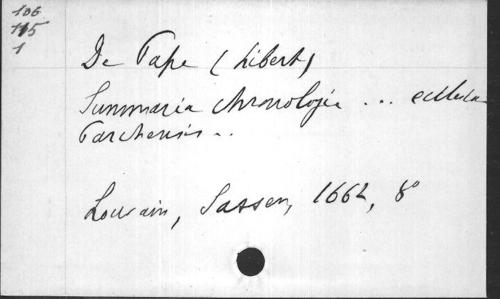 106
115
1
De Pape (Libert)
Summaria chronologia ... ecclesiae
Parchensis..
Louvain, Sassen, 1662, 8°